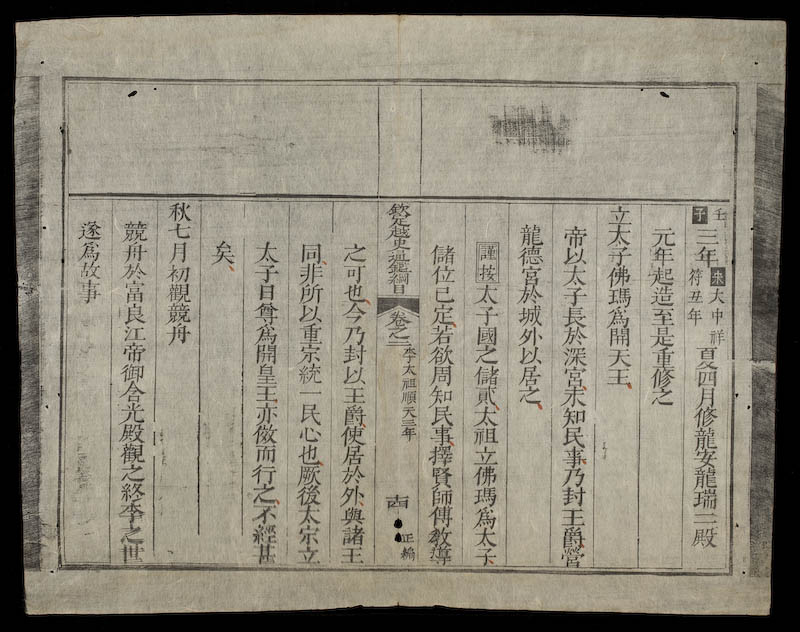 壬子三年宋大中祥符五年夏四月修龍安龍瑞二殿
元年起造至是重修之
立太子佛瑪爲開天王
帝以太子長於深宮未知民事乃封王爵營
龍德宮於城外以居之
謹按太子國之儲貳太祖立佛瑪爲太子
儲位已定若欲周知民事擇賢師傅教導
欽定越史通鑑綱目 卷之二 李太祖順天三年 十四 正編
之可也今乃封以王爵使居於外與諸王
同非所以重宗統一民心也厥後太宗立
太子日尊爲開皇王亦倣而行之不經甚
矣
秋七月初觀競舟
競舟於富良江帝御含光殿觀之終李之世
遂爲故事